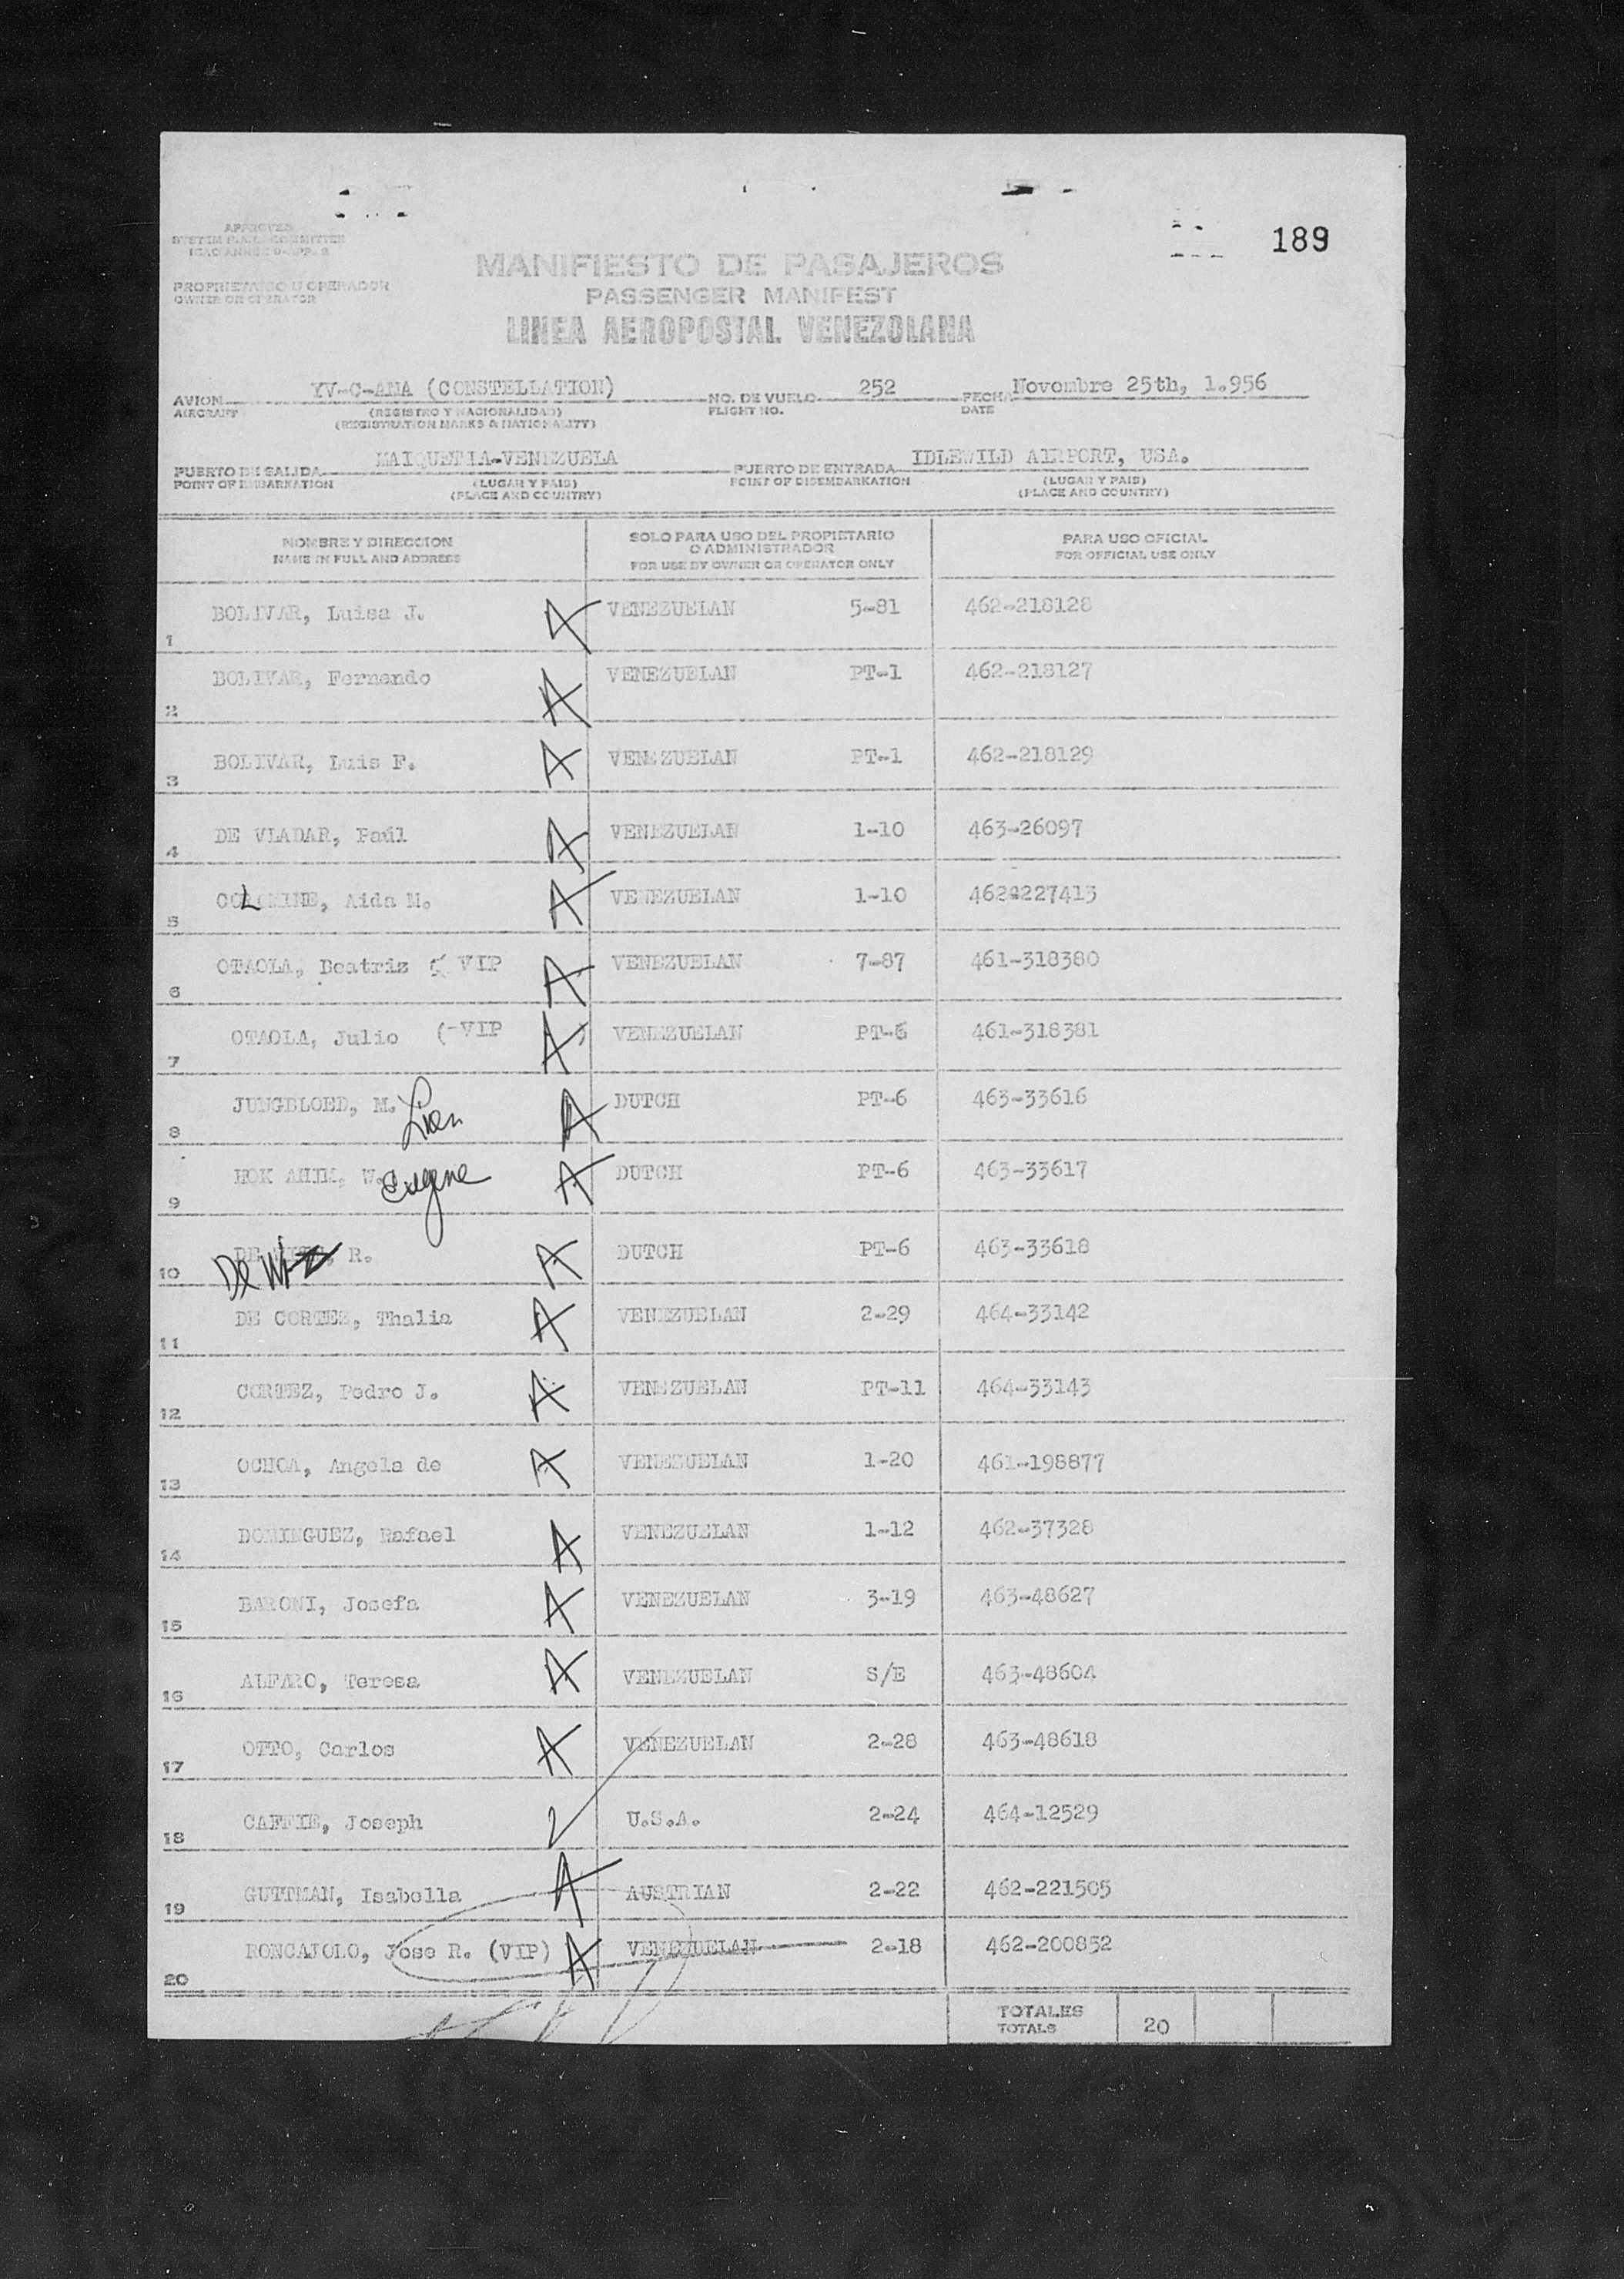 189
APPROVED
PROPRIETARIO U OPERADOR
OWNER OR OPERATOR
MANIFIESTO DE PASAJEROS
PASSENGER MANIFEST
LINEA AEROPOSTAL VENEZOLANA
AVION YV-C-AMA (CONSTELLATION) NO. DE VUELO 252 FECHA Novembre 25th, 1.956
AIRCRAFT (REGISTRO Y NACIONALIDAD) FLIGHT NO. DATE
(REGISTRATION MARKS & NATIONALITY)
PUERTO DE SALIDA MAIQUETIA-VENEZUELA PUERTO DE ENTRADA IDLEWILD AIRPORT, USA.
POINT OF EMBARKATION (LUGAR Y PAIS) POINT OF DISEMBARKATION (LUGAR Y PAIS)
(PLACE AND COUNTRY) (PLACE AND COUNTRY)
NOMBRE Y DIRECCION SOLO PARA USO DEL PROPIETARIO PARA USO OFICIAL
NAME IN FULL AND ADDRESS O ADMINISTRADOR FOR OFFICIAL USE ONLY
FOR USE BY OWNER OR OPERATOR ONLY
1 BOLIVAR, Luisa J. A VENEZUELAN 5-81 462-218128
2 BOLIVAR, Fernando A VENEZUELAN PT-1 462-218127
3 BOLIVAR, Luis F. A VENEZUELAN PT-1 462-218129
4 DE VLADAR, Paúl A VENEZUELAN 1-10 463-26097
5 Aida M. A VENEZUELAN 1-10 462-227413
6 OTAOLA, Beatriz VIP A VENEZUELAN 7-87 461-318380
7 OTAOLA, Julio (-VIP A) VENEZUELAN PT-6 461-318381
8 JUNGBLOED, M. Lien A DUTCH PT-6 463-33616
9 HOK W. Eugene A DUTCH PT-6 463-33617
10 De Wit R. A DUTCH PT-6 463-33618
11 DE CORTEZ, Thalia A VENEZUELAN 2-29 464-33142
12 CORTEZ, Pedro J. A VENEZUELAN PT-11 464-33143
13 OCHOA, Angela de A VENEZUELAN 1-20 461-198877
14 DOMINGUEZ, Rafael A VENEZUELAN 1-12 462-37328
15 BARONI, Josefa A VENEZUELAN 3-19 463-48627
16 ALFARO, Teresa A VENEZUELAN S/E 463-48604
17 OTTO, Carlos A VENEZUELAN 2-28 463-48618
18 Joseph U.S.A. 2-24 464-12529
19 GUTTMAN, Isabella A AUSTRIAN 2-22 462-221505
20 RONCAJOLO, Jose R. (VIP) A VENEZUELAN 2-18 462-200852
TOTALES
TOTALS 20